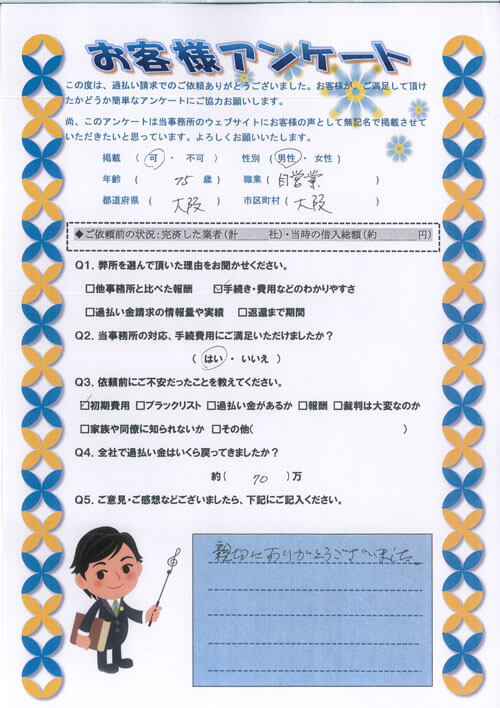 お客様アンケート
この度は、過払い請求でのご依頼ありがとうございました。お客様が、ご満足して頂け
たかどうか簡単なアンケートにご協力お願いします。
尚、このアンケートは当事務所のウェブサイトにお客様の声として無記名で掲載させて
いただきたいと思っています。よろしくお願いいたします。
掲載 ( 可 ・ 不可 ) 性別 ( 男性 ・ 女性 )
年齢 ( 75 歳 ) 職業 ( 自営業 )
都道府県 ( 大阪 ) 市区町村 ( 大阪 )
◆ご依頼前の状況：完済した業者(計 社)・当時の借入総額(約 円)
Q1. 弊所を選んで頂いた理由をお聞かせください。
□他事務所と比べた報酬 ☑手続き・費用などのわかりやすさ
□過払い金請求の情報量や実績 □返還まで期間
Q2. 当事務所の対応、手続費用にご満足いただけましたか？
( はい ・ いいえ )
Q3. 依頼前にご不安だったことを教えてください。
☑初期費用 □ブラックリスト □過払い金があるか □報酬 □裁判は大変なのか
□家族や同僚に知られないか □その他( )
Q4. 全社で過払い金はいくら戻ってきましたか？
約( 70 )万
Q5. ご意見・ご感想などございましたら、下記にご記入ください。
親切にありがとうございました。